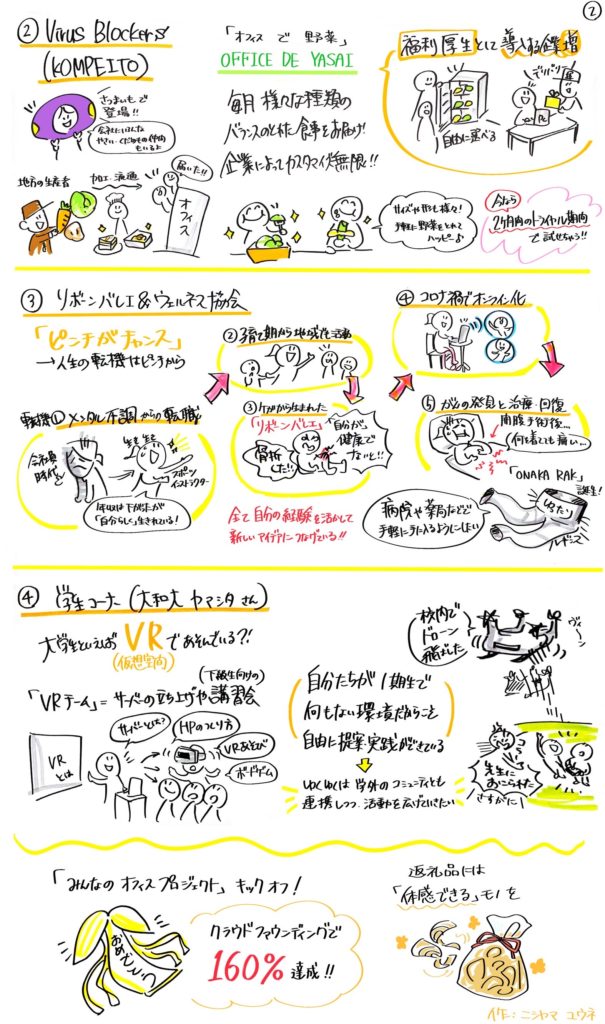 ②
② Virus Blockers
(KOMPEITO)
さつまいもで
登場!!
会社にいるみんな
「オフィス で 野菜」
OFFICE DE YASAI
毎月 様々な種類の
バランスのとれた食事をお届け!
企業によってカスタマイズ無限!!
福利厚生として導入する企業増
自由に選べる
PC
地方の生産者
加工・流通
届いた!!
オフィス
サイズや形も様々!
手軽に野菜をとれて
ハッピー♪
今なら
2ヶ月間のトライアル期間
で試せちゃう!!
③ リボーンバレエ&ウェルネス協会
「ピンチがチャンス」
→人生の転機はピンチから
転機① メンタル不調からの転職
会社員
時代
スポーツ
インストラクター
年収は下がったが
「自分らしく」生きれている!
②子育て期から地域でも活動
③ケガから生まれた
「リボーンバレエ」
骨折
した!!
「自分が
健康で
ないと!!」
全て自分の経験を活かして
新しいアイデアにつなげている!!
④ コロナ禍でオンライン化
⑤ がんの発見と治療・回復
開腹手術後…
何を着ても痛い…
「ONAKA RAK」
誕生!
病院や薬局などで
手軽に手に入るようにしたい
ゆったり
④ 学生コーナー(大和大 ヤマシタさん)
大学生といえば VR であそんでいる?!
(仮想空間)
(下級生向けの)
「VRチーム」= サーバーの立ち上げや講習会
VR
とは
サーバーとは?
HPのつくり方
VRあそび
ボードゲーム
自分たちが1期生で
何もない環境だからこそ
自由に提案・実践ができている
ゆくゆくは学外のコミュニティとも
連携しつつ活動を広げていきたい
校内で
ドローン
飛ばした
ヴィーン
先生に
おこられた
さすがに!
「みんなの オフィスプロジェクト」キックオフ!
おめでとう
クラウドファウンディングで
160%達成!!
返礼品には
「体感できる」モノを
作:ニシヤマ ユウネ